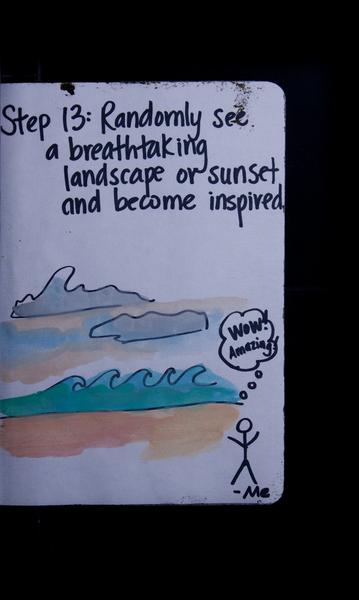 Step 13: Randomly see
a breathtaking
landscape or sunset
and become inspired
Wow!
Amazing!
- Me